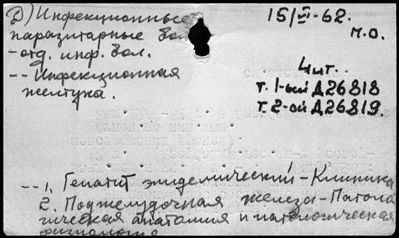 Д) Инфекционные
паразитарные бол
- отд. инф. бол.
-- Инфекционная
желтуха.
15/VI-62.
М.О.
4 чит.
т. 1-ый Д26818
т. 2-ой Д26819.
-- 1. Гепатит эпидемический - Клиника
2. Поджелудочная железа - Патоло
гическая анатомия и патологическая
физиология